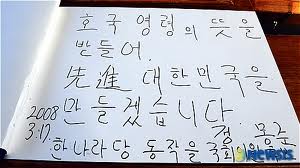 호국영령의 뜻을
받들어.
先進 대한민국을
만들겠습니다
2008
3.17.
정. 몽준
한나라당 동작을 국회의원